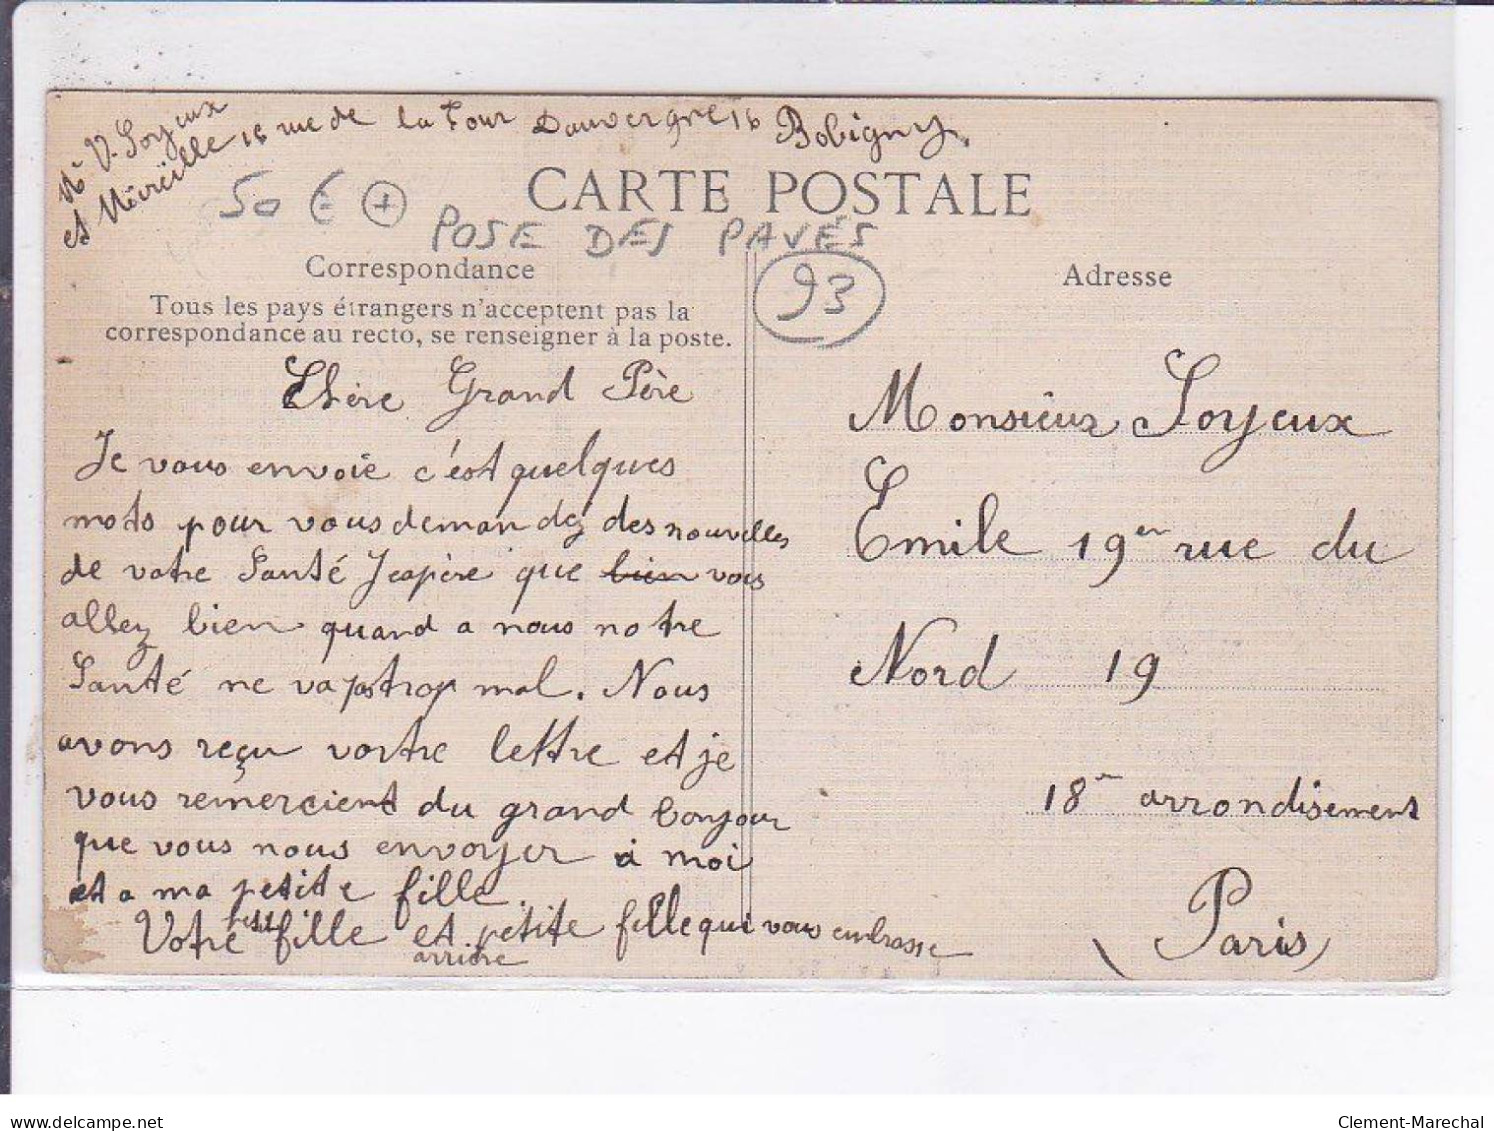 V. Soyeux
et Mireille 16 rue de la Tour Dauvergne 16 Bobigny.
CARTE POSTALE
50 € +
POSE DES PAVÉS
93
Correspondance
Tous les pays étrangers n'acceptent pas la
correspondance au recto, se renseigner à la poste.
Chère Grand Père
Je vous envoie c'est quelques
mots pour vous demandez des nouvelles
de votre Santé Jeapère que bien vous
allez bien quand a nous notre
Santé ne va pas trop mal. Nous
avons reçu vortre lettre et je
vous remercient du grand bonjour
que vous nous envoyer a moi
et a ma petite fille.
Votre petite fille et arrière petite fille qui vous embrasse
Adresse
Monsieur Soyeux
Emile 19 en rue du
Nord 19
18 arrondisement
(Paris)
delcampe.net
Clement-Marechal